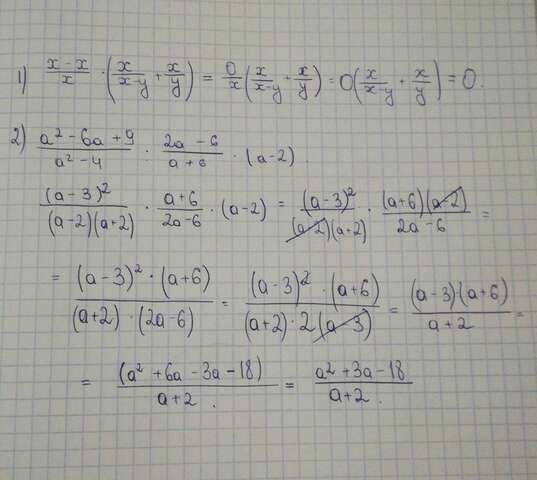 1) \frac{x-x}{x} \cdot \left(\frac{x}{x-y} + \frac{x}{y}\right) = \frac{0}{x}\left(\frac{x}{x-y} + \frac{x}{y}\right) = 0\left(\frac{x}{x-y} + \frac{x}{y}\right) = 0.
2) \frac{a^2-6a+9}{a^2-4} : \frac{2a-6}{a+6} \cdot (a-2).
\frac{(a-3)^2}{(a-2)(a+2)} \cdot \frac{a+6}{2a-6} \cdot (a-2) = \frac{(a-3)^2}{(a-2)(a+2)} \cdot \frac{(a+6)(a-2)}{2a-6} =
= \frac{(a-3)^2 \cdot (a+6)}{(a+2) \cdot (2a-6)} = \frac{(a-3)^2 \cdot (a+6)}{(a+2) \cdot 2(a-3)} = \frac{(a-3) \cdot (a+6)}{a+2} =
= \frac{(a^2+6a-3a-18)}{a+2.} = \frac{a^2+3a-18}{a+2.}